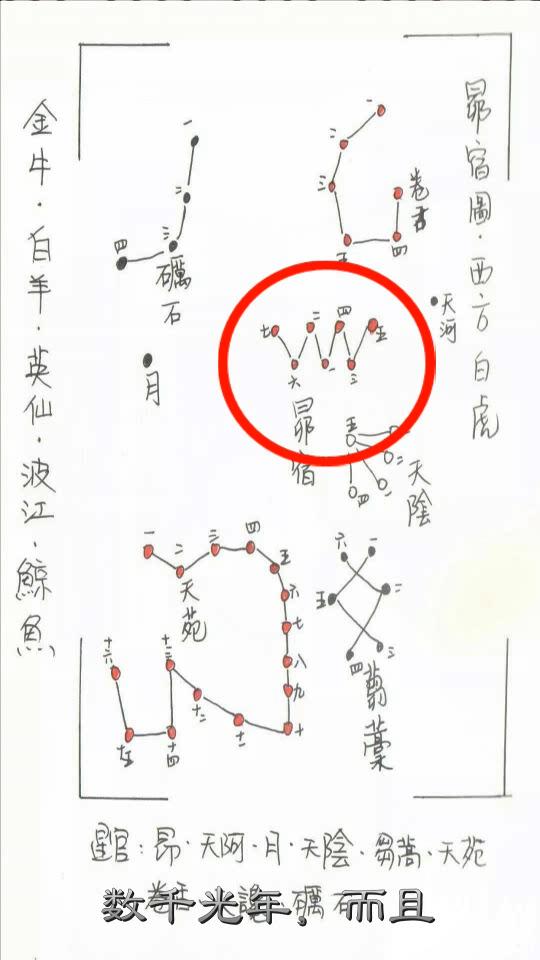 昴宿圖·西方白虎
一
二
三
四
五
卷舌
天河
一
二
三
四
礪石
月
七
二
四
五
六
一
三
昴宿
五
二
四
天陰
六
一
五
二
四
三
芻藁
一
二
三
四
五
六
七
八
九
十
十一
十二
十三
十四
十五
十六
天苑
金牛·白羊·英仙·波江·鯨魚
星官:昴·天阿·月·天陰·芻蒿·天苑
卷舌·天讒·礪石
数千光年，而且